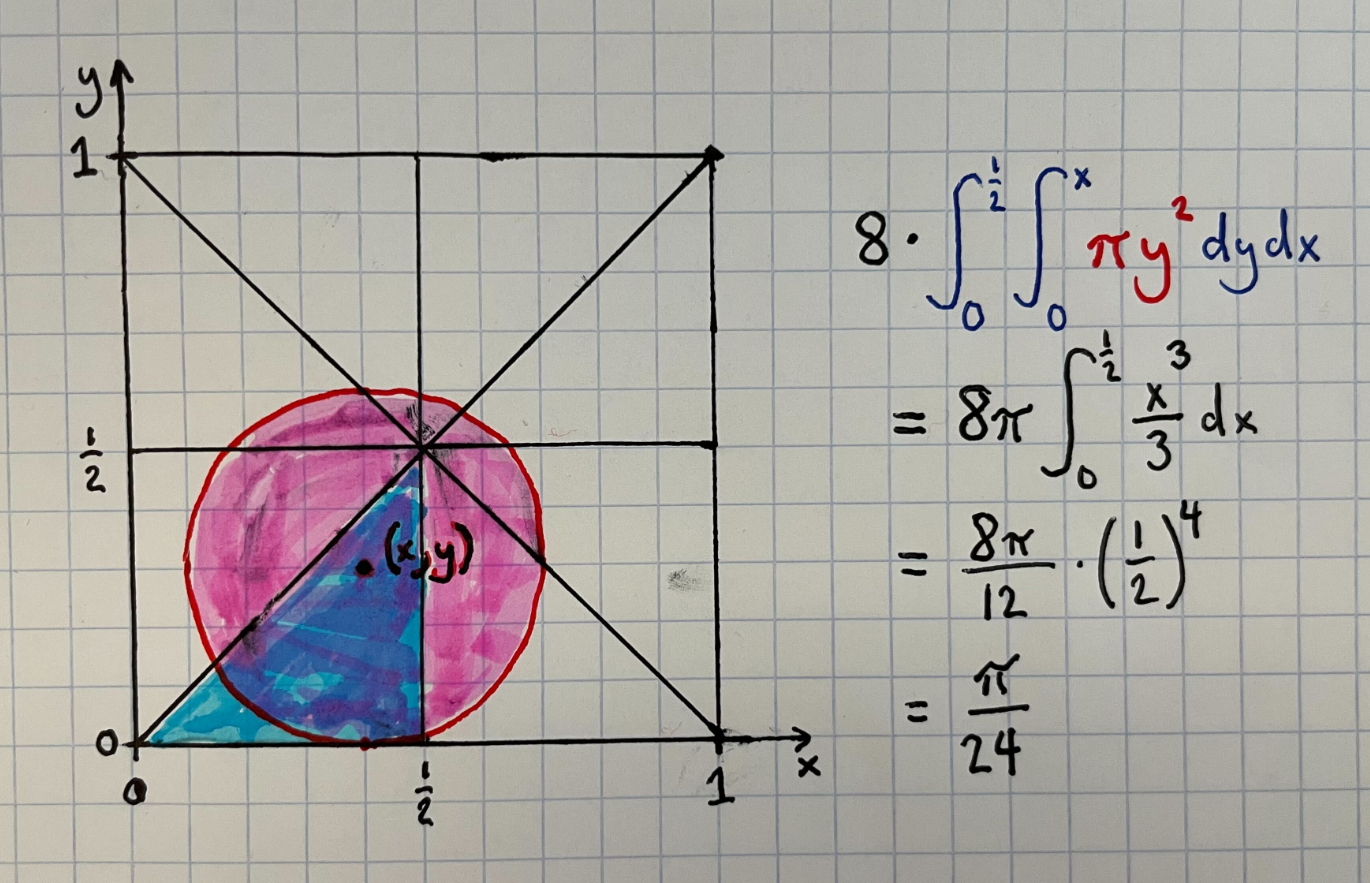 y
1
1/2
(x,y)
0
x
0
1/2
1
8 · ∫₀^{1/2} ∫₀^x πy² dy dx
= 8π ∫₀^{1/2} x³/3 dx
= 8π/12 · (1/2)⁴
= π/24